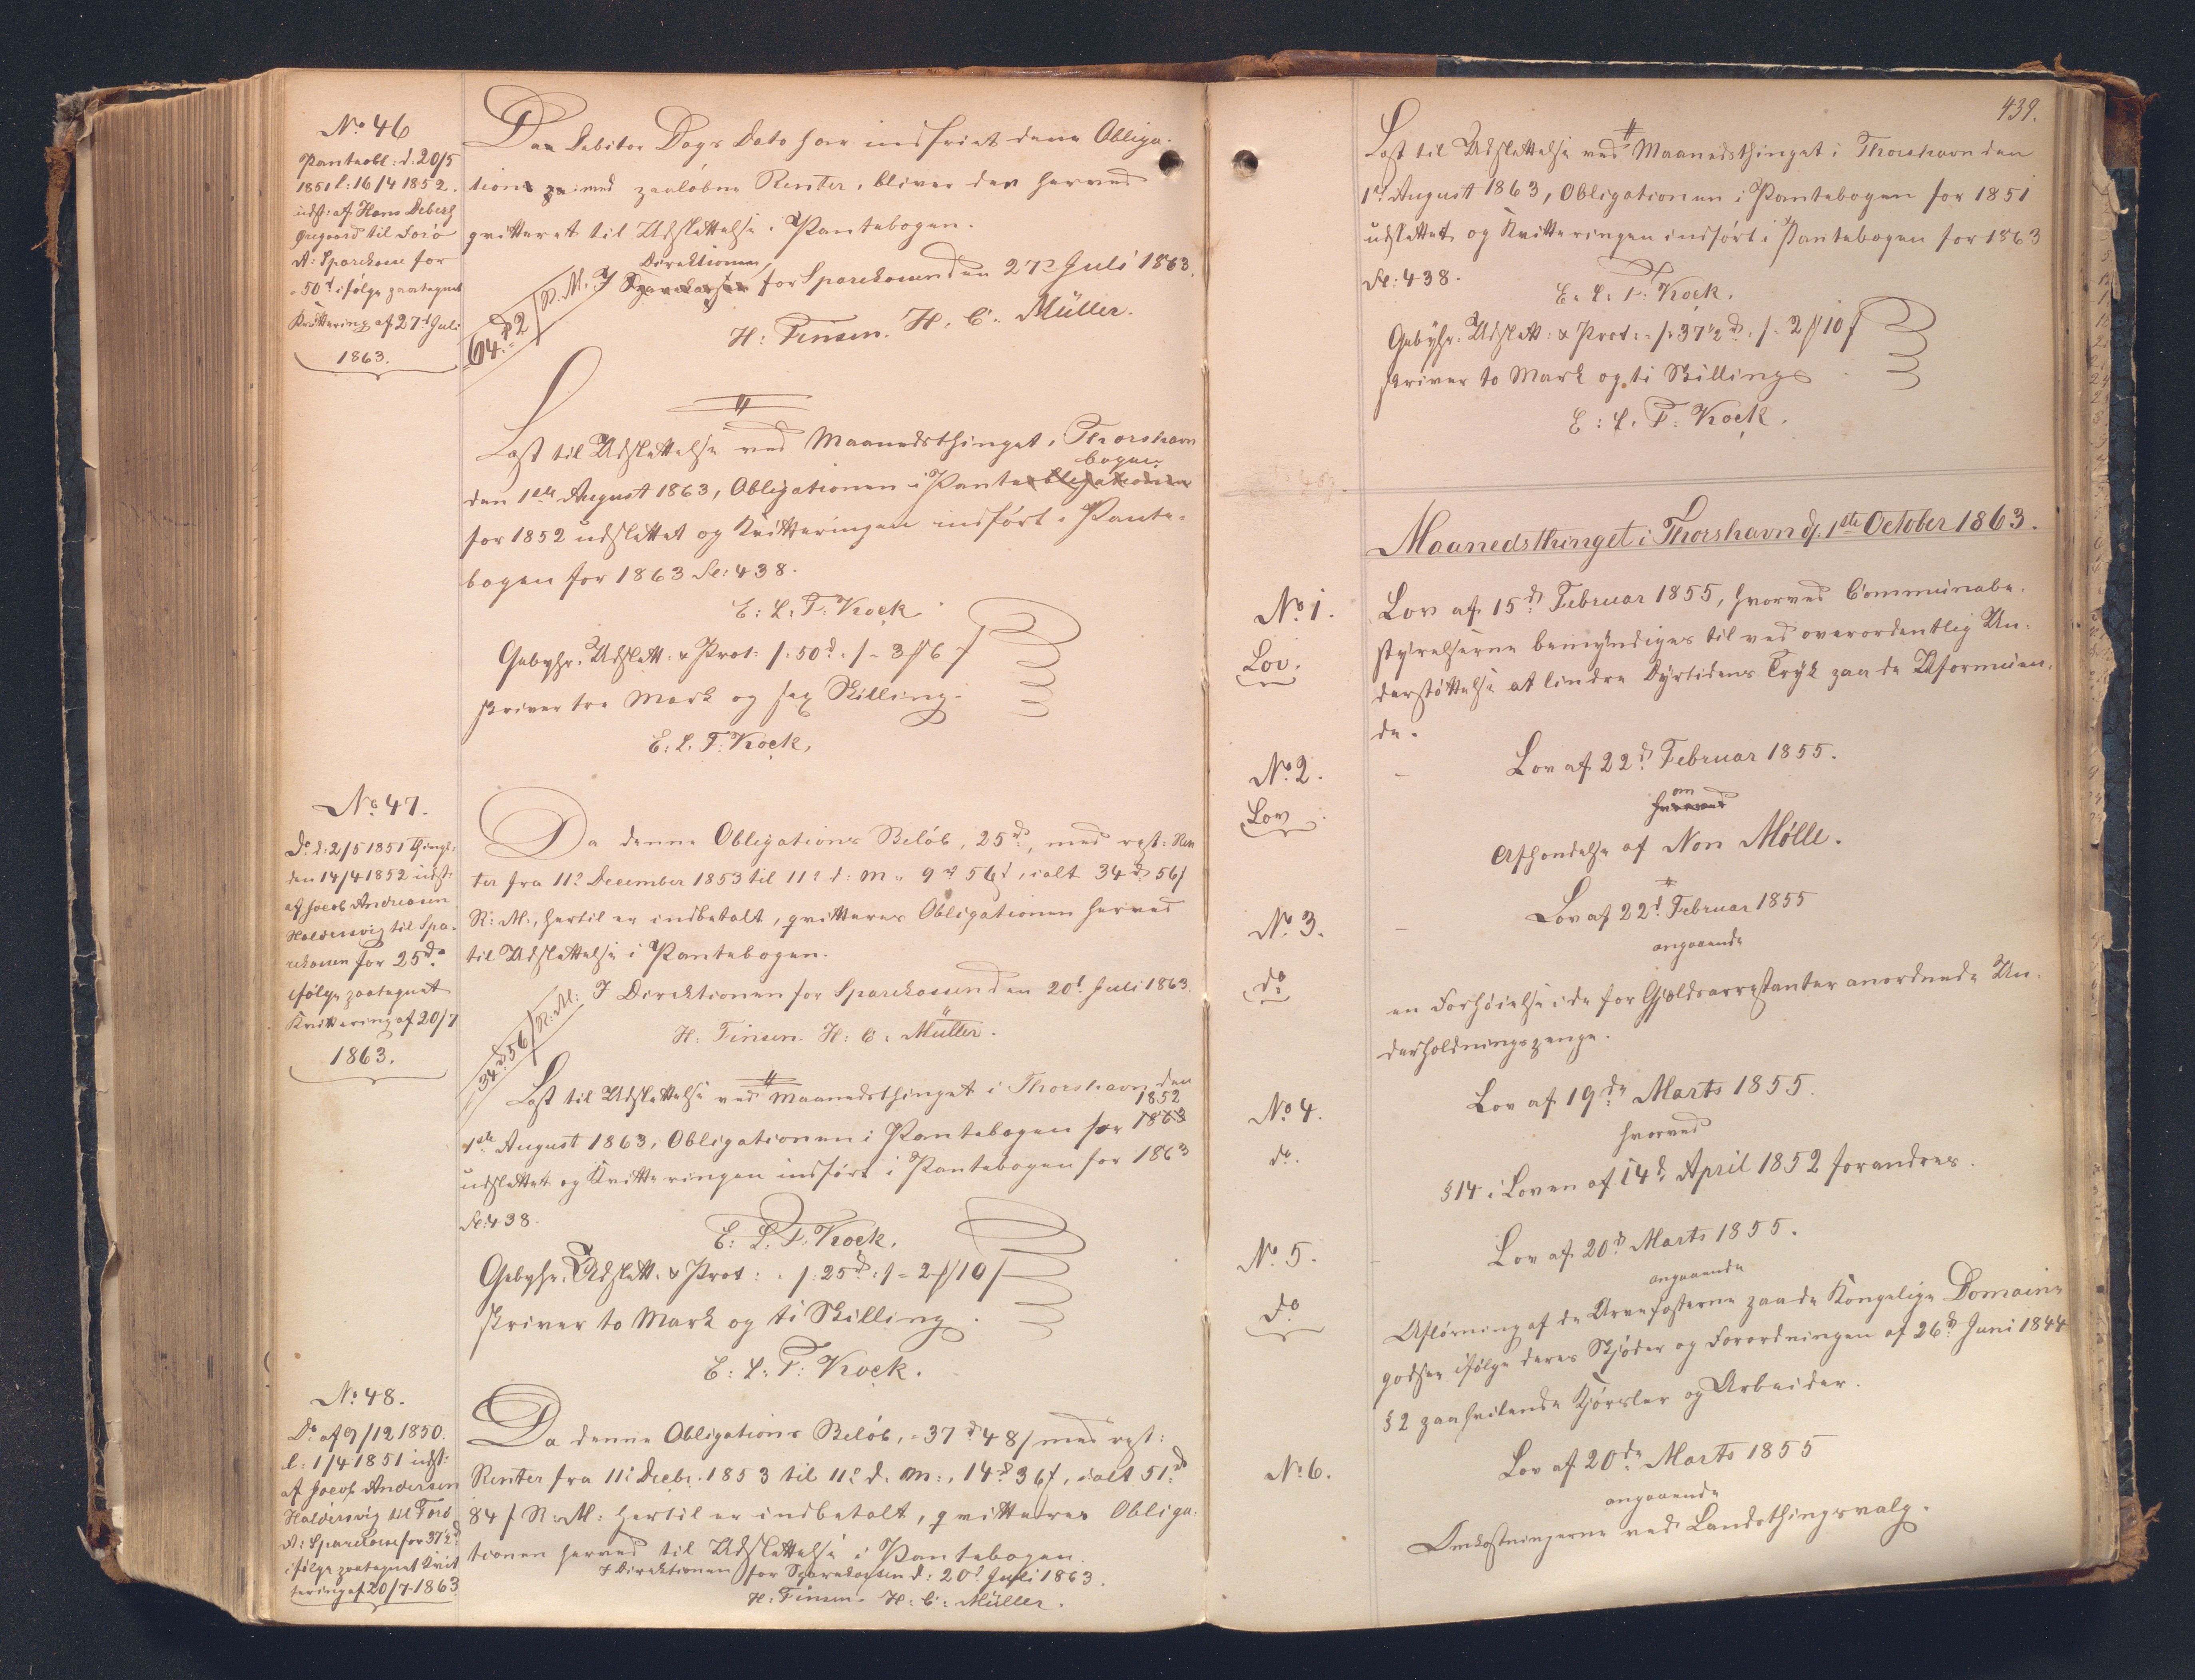 No 46
Panteobl: d: 20/5
1851 l: 16/4 1852.
udst: af Hans Debes
til Færø
A: Sparekasse for
50 d ifølge paategnet
Kvittering af 27 d Juli
1863.
Da Debitor Dags Dato har indfriet denne Obliga-
tion med paaløbne Renter, bliver den herved
qvitteret til Udslettelse i Pantebogen.
Direktionen
64 d 2 / R. M. I for Sparekassen den 27 d Juli 1863.
H: Finsen. H. C. Müller.
Læst til Udslettelse ved Maanedsthinget i Thorshavn
bogen
den 1ste August 1863, Obligationen i Panteobligationen
for 1852 udslettet og Kvitteringen indført i Pante-
bogen for 1863 Fo: 438.
E: L: F: Kock
Gebyhr: Udslett: & Prot: /: 50 d :/ = 3 # 6 /
skriver tre Mark og sex Skilling.
E: L. F: Kock.
No 47.
Do d: 2/5 1851 Thingl:
den 14/4 1852 udst:
af Jacob Andreasen
Haldersvig til Spa-
rekassen for 25 d
ifølge paategnet
Kvittering af 20/7
1863.
Da denne Obligations Beløb, 25 d, med rest: Ren
ter fra 11 December 1853 til 11 d: M: 9 d 56 /, ialt 34 d 56 /
R: M:, hertil er indbetalt, qvitteres Obligationen herved
til Udslettelse i Pantebogen.
34 d 56 / R: M: I Direktionen for Sparekassen den 20 d Juli 1863.
H: Finsen. H: C: Müller.
Læst til Udslettelse ved Maanedsthinget i Thorshavn den
1852
1ste August 1863, Obligationen i Pantebogen for 1863
udslettet og Kvitteringen indført i Pantebogen for 1863
Fo: 438.
E: L: F. Kock.
Gebyhr: Udslett: & Prot: /: 25 d :/ = 2 # 10 /
skriver to Mark og ti Skilling.
E: L: F: Kock.
No 48.
Do af 9/12 1850.
l: 1/4 1851 udst:
af Jacob Andersen
Haldersvig til Færø
A: Sparekasse for 37½ d
ifølge paategnet Kvit
tering af 20/7 1863
Da denne Obligations Beløb, 37 d 48 / med rest:
Renter fra 11 Decbr. 1853 til 11 d. M:, 14 d 36 /, ialt 51 d
84 / R: M: hertil er indbetalt, qvitteres Obliga-
tionen herved til Udslettelse i Pantebogen.
I Direktionen for Sparekassen d: 20 d Juli 1863.
H: Finsen. H: C: Müller.
439.
Læst til Udslettelse ved Maanedsthinget i Thorshavn den
1ste August 1863, Obligationen i Pantebogen for 1851
udslettet og Kvitteringen indført i Pantebogen for 1863
Fo: 438.
E. L. F: Kock.
Gebyhr: Udslett: & Prot: /: 37½ d :/ = 2 # 10 /
skriver to Mark og ti Skilling
E: L. F: Kock.
Maanedsthinget i Thorshavn d. 1ste October 1863.
No 1.
Lov.
Lov af 15 d Februar 1855, hvorved Communabe-
styrelserne bemyndiges til ved overordentlig Un-
derstøttelse at lindre Dyrtidens Tryk paa de Uformuen-
de.
No 2.
Lov
Lov af 22 d Februar 1855.
om
hvorved
Afhændelse af Non Mølle.
No 3.
do
Lov af 22 d Februar 1855
angaaende
en Forhøielse i de for Gjældsarrestanter anordnede Un-
derholdningspenge.
No 4.
do.
Lov af 19de Marts 1855.
hvorved
§ 14 i Loven af 14 d April 1852 forandres.
No 5.
do
Lov af 20 d Marts 1855.
angaaende
Afløsning af de Arvefæsterne paa de Kongelige Domaine
godser ifølge deres Skjøder og Forordningen af 26 d Juni 1844
§ 2 paahvilende Kjørsler og Arbeider.
No 6.
Lov af 20de Marts 1855
angaaende
Omkostningerne ved Landsthingsvalg.